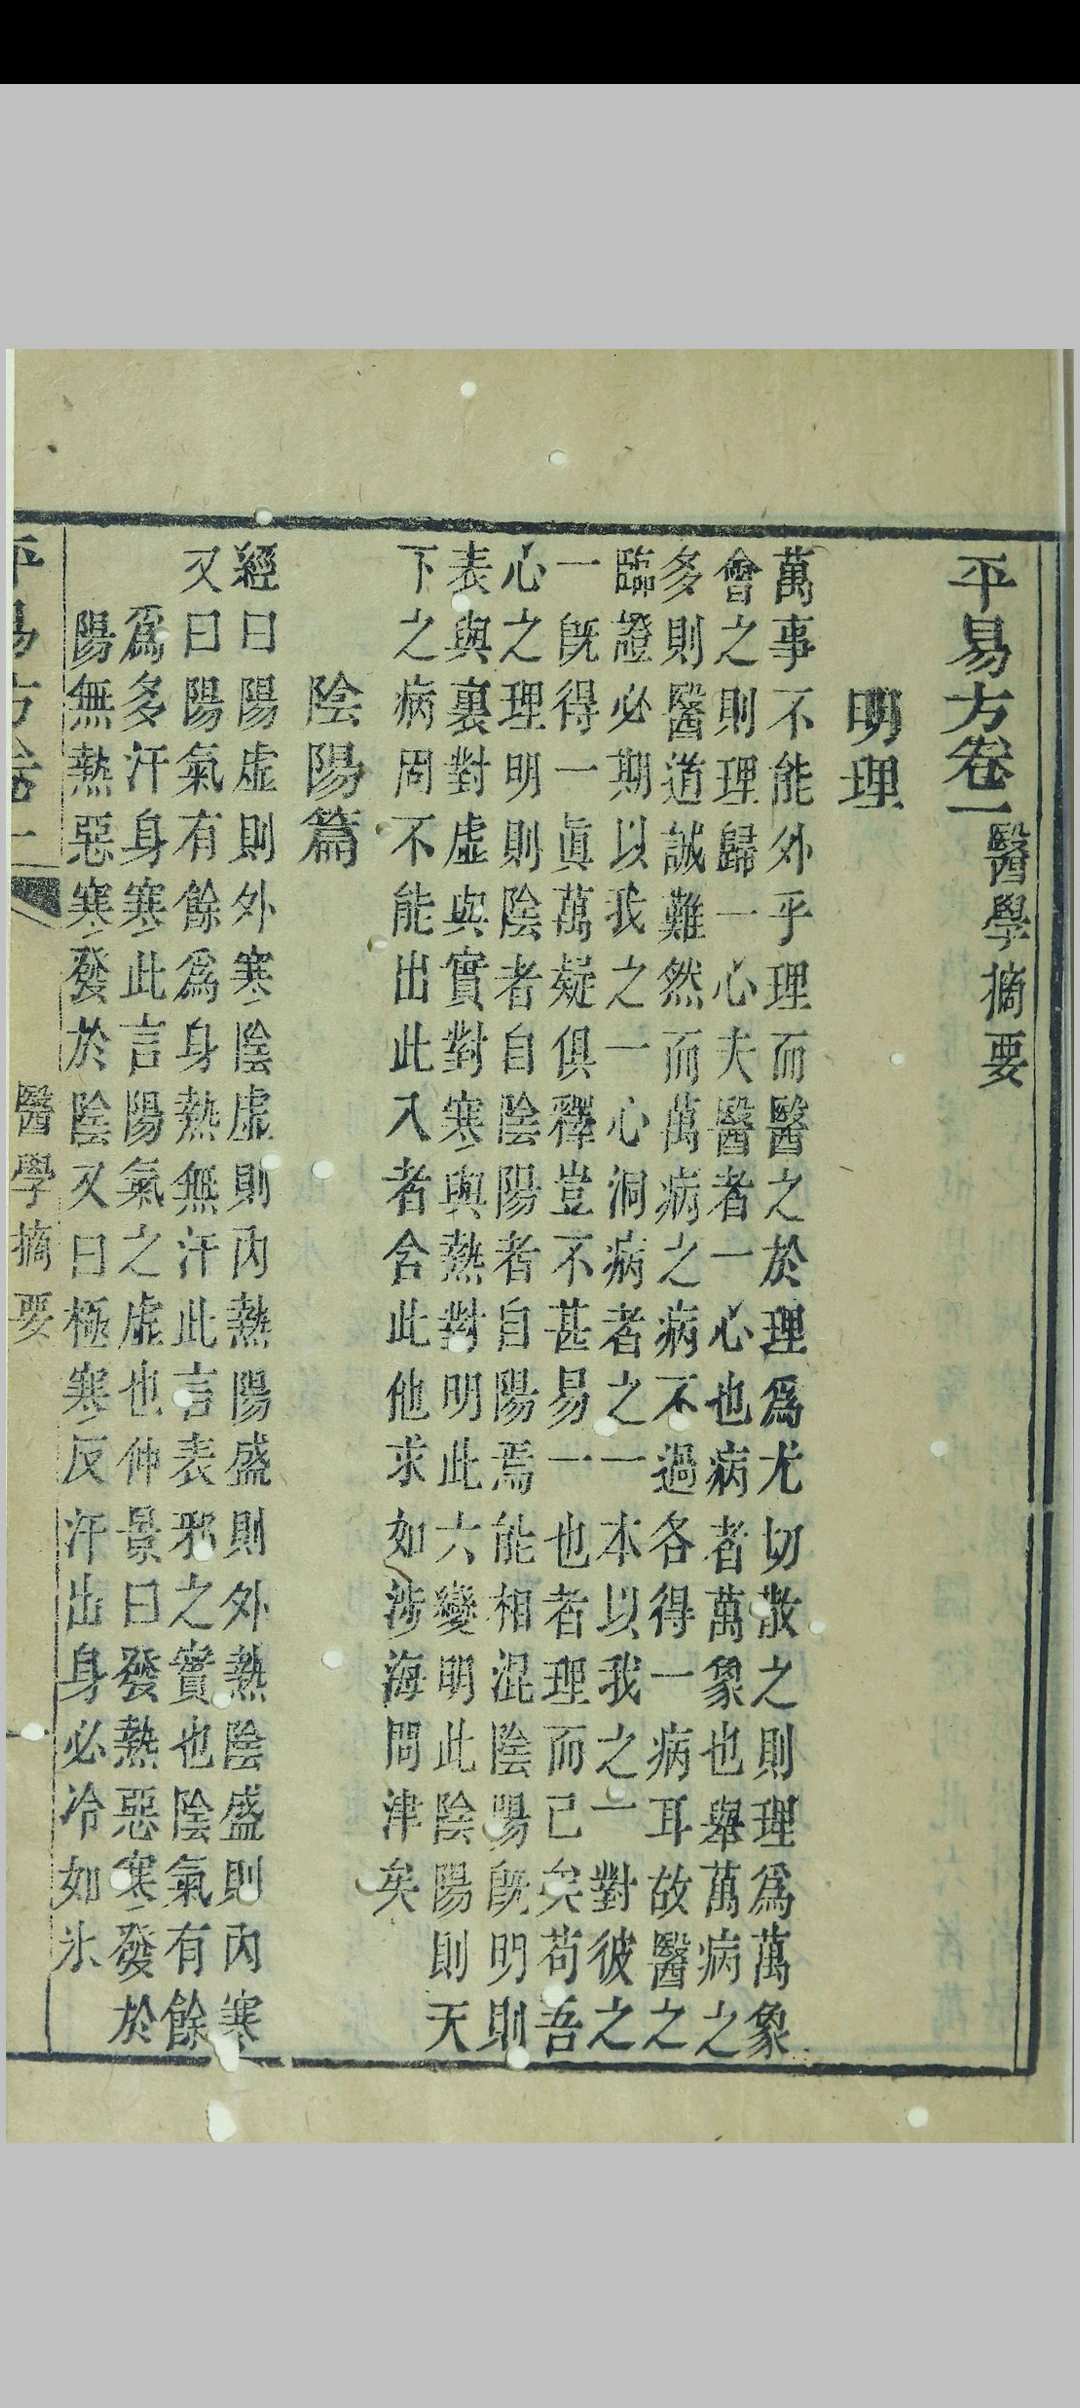 平易方卷一 醫學摘要
明理
萬事不能外乎理而醫之於理爲尤切散之則理爲萬象
會之則理歸一心夫醫者一心也病者萬象也舉萬病之
多則醫道誠難然而萬病之病不過各得一病耳故醫之
臨證必期以我之一心洞病者之一本以我之一對彼之
一既得一眞萬疑俱釋豈不甚易一也者理而已矣苟吾
心之理明則陰者自陰陽者自陽焉能相混陰陽既明則
表與裏對虛與實對寒與熱對明此六變明此陰陽則天
下之病周不能出此入者含此他求如涉海問津矣
陰陽篇
經曰陽虛則外寒陰虛則內熱陽盛則外熱陰盛則內寒
又曰陽氣有餘爲身熱無汗此言表邪之實也陰氣有餘
爲多汗身寒此言陽氣之虛也仲景曰發熱惡寒發於
陽無熱惡寒發於陰又曰極寒反汗出身必冷如氷
平易方卷一 醫學摘要